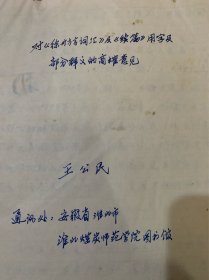 对《徐州方言词汇》及《续篇》用字及
部分释义的商榷意见
王公民
通讯处：安徽省淮北市
淮北煤炭师范学院图书馆